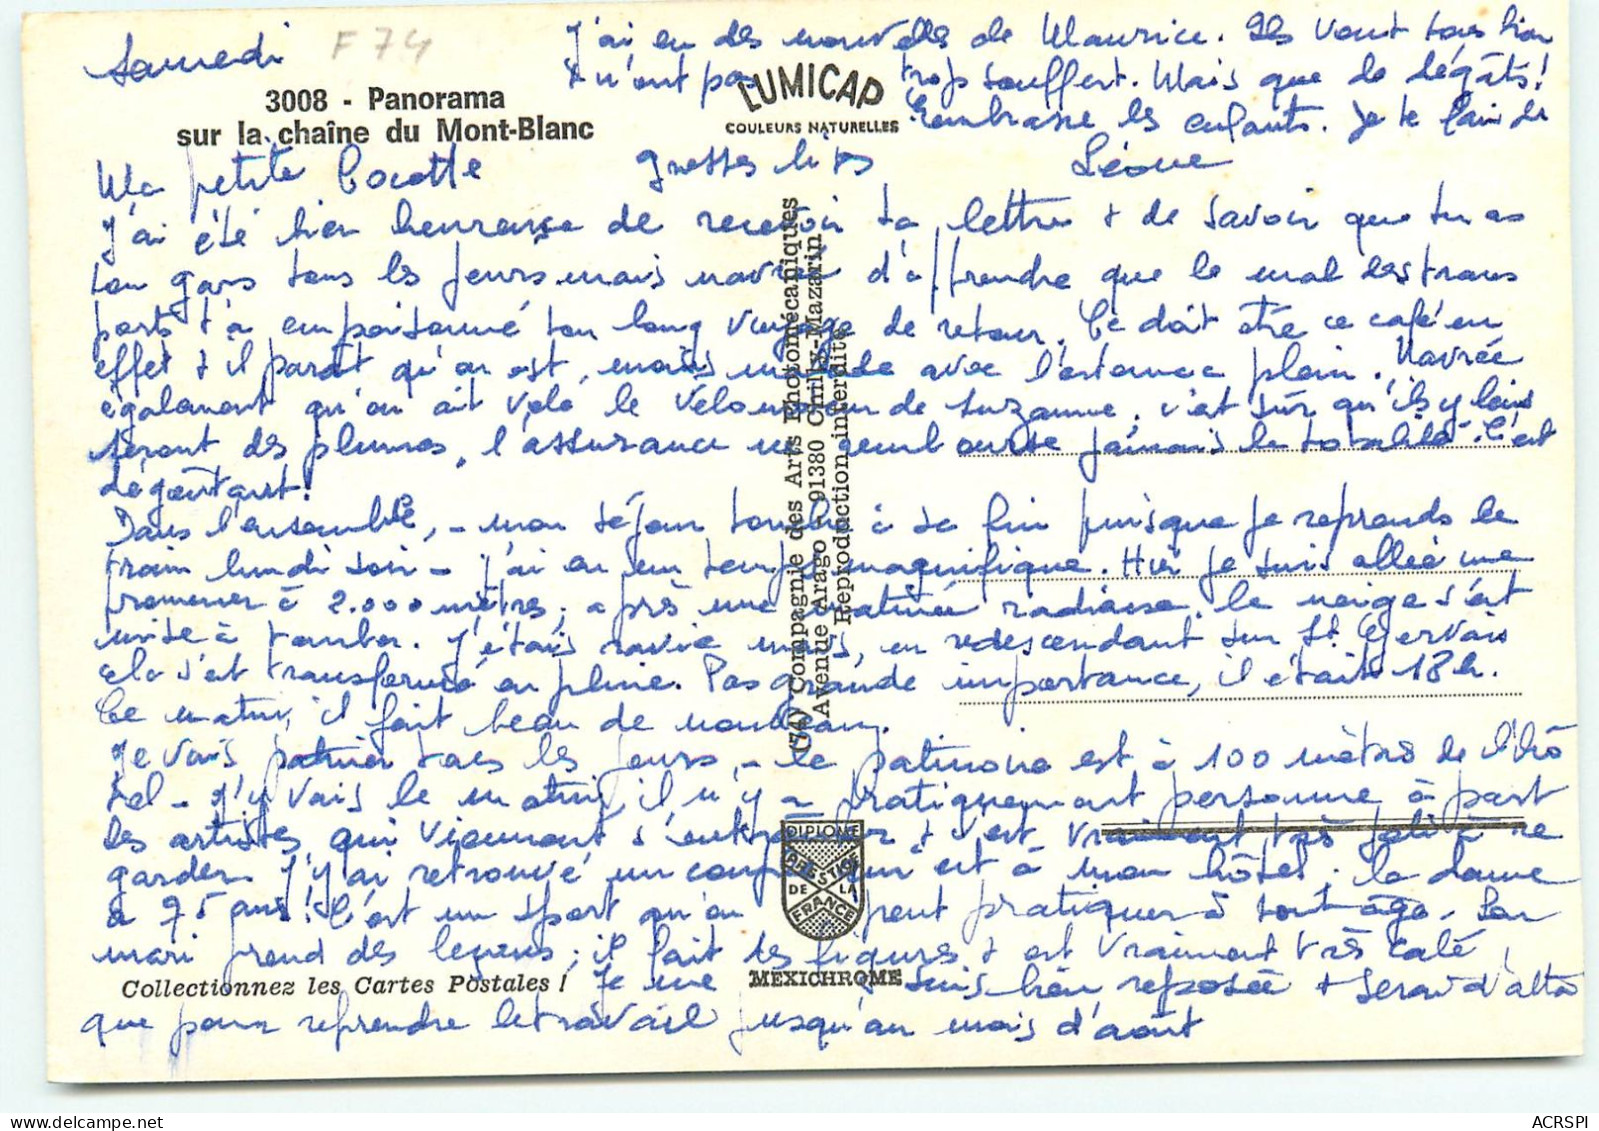 Samedi
F 74
3008 - Panorama
sur la chaîne du Mont-Blanc
LUMICAP
COULEURS NATURELLES
Ma petite Cocotte
J'ai été bien heureuse de recevoir ta lettre & de savoir que tu as
ton gars tous les jours mais navrée d'apprendre que le mal des trans
ports t'a empoisonné ton long voyage de retour. Ce doit être ce café en
effet & il paraît qu'on est, moins malade avec l'estomac plein. Navrée
également qu'on ait volé le vélomoteur de Suzanne, c'est sûr qu'ils y lais
seront des plumes, l'assurance ne rembourse jamais la totalité. C'est
dégoûtant!
Dans l'ensemble, - mon séjour touche à sa fin puisque je reprends le
train lundi soir - j'ai eu un temps magnifique. Hier je suis allée me
promener à 2.000 mètres; après une matinée radieuse, la neige s'est
mise à tomber. J'étais ravie mais, en redescendant sur St Gervais
cela s'est transformé en pluie. Pas grande importance, il était 18 h.
Ce matin, il fait beau de nouveau.
Je vais patiner tous les jours, - la patinoire est à 100 mètres de l'hô
tel - j'y vais le matin, il n'y a pratiquement personne à part
les artistes qui viennent s'entraîner & c'est vraiment très joli à re
garder. J'y ai retrouvé un couple qui est à mon hôtel; la dame
a 75 ans! C'est un sport qu'on peut pratiquer à tout âge. Son
mari prend des leçons; il fait des figures & est vraiment très calé.
Je me suis bien reposée & serai d'atta
que pour reprendre le travail jusqu'au mois d'août
J'ai eu des nouvelles de Maurice. Ils vont tous bien
& n'ont pas trop souffert. Mais que de dégâts!
Embrasse les enfants. Je te fais de
grosses bises
Léone
(74) Compagnie des Arts Photomécaniques
Avenue Arago - 91380 Chilly-Mazarin
Reproduction interdite
DIPLOME
PRESTIGE
DE LA
FRANCE
MEXICHROME
Collectionnez les Cartes Postales !
ACRSPI